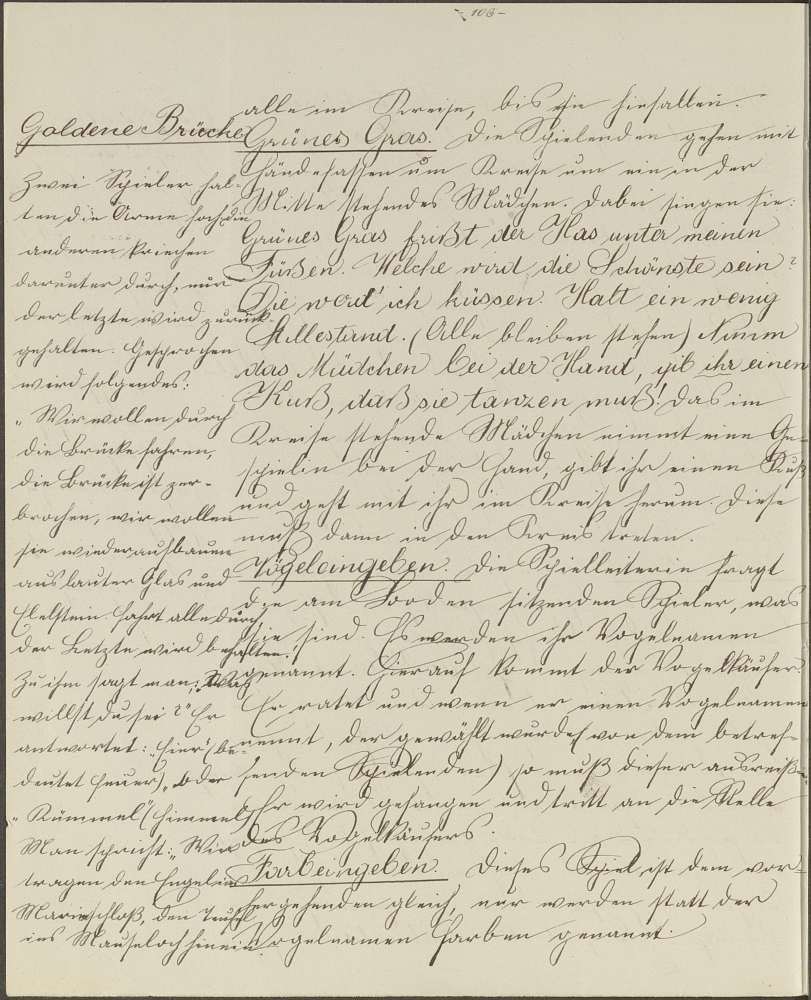 - 106 -
Goldene Brücke
Zwei Spieler hal-
ten die Arme hoch, die
anderen kriechen
darunter durch, nur
der letzte wird zurück-
gehalten. Gesprochen
wird folgendes:
"Wir wollen durch
die Brücke fahren,
die Brücke ist zer-
brochen, wir wollen
sie wiederaufbauen
aus lauter Glas und
Elelstein. Fahrt alle durch,
der Letzte wird behalten!"
Zu ihm sagt man: "Was
willst du sei?" Er
antwortet: "Eier" (be-
deutet Feuer), oder
"Kümmel" (Himmel)
Man spricht: "Wir
tragen den Engel ins
Marieschloß, den Teufel
ins Mauseloch hinein."
alle im Kreise, bis sie hinfallen.
Grünes Gras. Die Spielenden gehen mit
Händefassen um Kreise um ein in der
Mitte stehendes Mädchen. Dabei singen sie:
Grünes Gras frißt der Has unter meinen
Füßen. Welche wird die Schönste sein?
Die werd' ich küssen. Halt ein wenig
stillestand. (Alle bleiben stehen) Nimm
das Mädchen bei der Hand, gib ihr einen
Kuß, daß sie tanzen muß! Das im
Kreise stehende Mädchen nimmt eine Ge-
spielin bei der Hand, gibt ihr einen Kuß
und geht mit ihr im Kreise herum. Diese
muß dann in den Kreis treten.
Vögeleingeben. Die Spielleiterin fragt
die am Booden sitzenden Spieler, was
sie sind. Es werden ihr Vogelnamen
genannt. Hierauf kommt der Vogelkäufer.
Er ratet und wenn er einen Vogelnamen
nennt, der gewählt wurde (von dem betref-
fenden Spielenden) so muß dieser ausreiß-
Er wird gefangen und tritt an die Stelle
des Vogelkäufers.
Farbeingeben. Dieses Spiel ist dem vor-
hergehenden gleich, nur werden statt der
Vogelnamen Farben genannt.